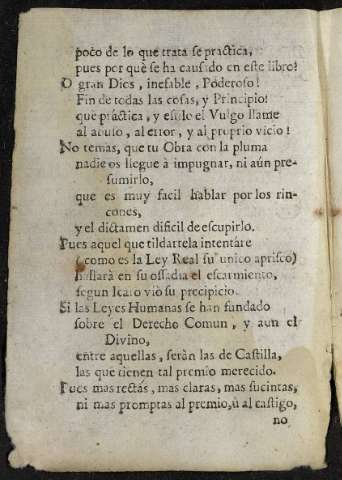 poco de lo que trata se practica,
pues por què se ha causado en este libro?
O gran Dios, inefable, Poderoso!
Fin de todas las cosas, y Principio!
que práctica, y estilo el Vulgo llame
al abuso, al error, y al proprio vicio!
No temas, que tu Obra con la pluma
nadie os llegue à impugnar, ni aún pre-
sumirlo,
que es muy facil hablar por los rin-
cones,
y el dictamen dificil de escupirlo.
Pues aquel que tildartela intentáre
(como es la Ley Real su unico aprisco)
hallará en su ossadia el escarmiento,
segun Icaro viò su precipicio.
Si las Leyes Humanas se han fundado
sobre el Derecho Comun, y aun el
Divino,
entre aquellas, seràn las de Castilla,
las que tienen tal premio merecido.
Pues mas rectás, mas claras, mas sucintas,
ni mas promptas al premio, ù al castigo,
no